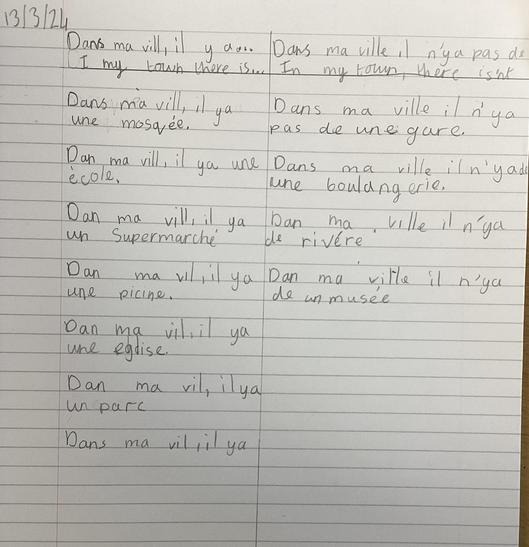 13/3/24
Dans ma vill, il y a...
I my town there is...
Dans ma vill, il ya
une mosquée.
Dan ma vill, il ya une
école.
Dan ma vill, il ya
un Supermarché
Dan ma vil, il ya
une picine.
Dan ma vil, il ya
une eglise.
Dan ma vil, il ya
un parc
Dans ma vil, il ya
Dans ma ville il n'ya pas de
In my town, there isnt
Dans ma ville il n'ya
pas de une gare.
Dans ma ville il n'ya de
une boulangerie.
Dan ma ville il n'ya
de rivére
Dan ma ville il n'ya
de un musée